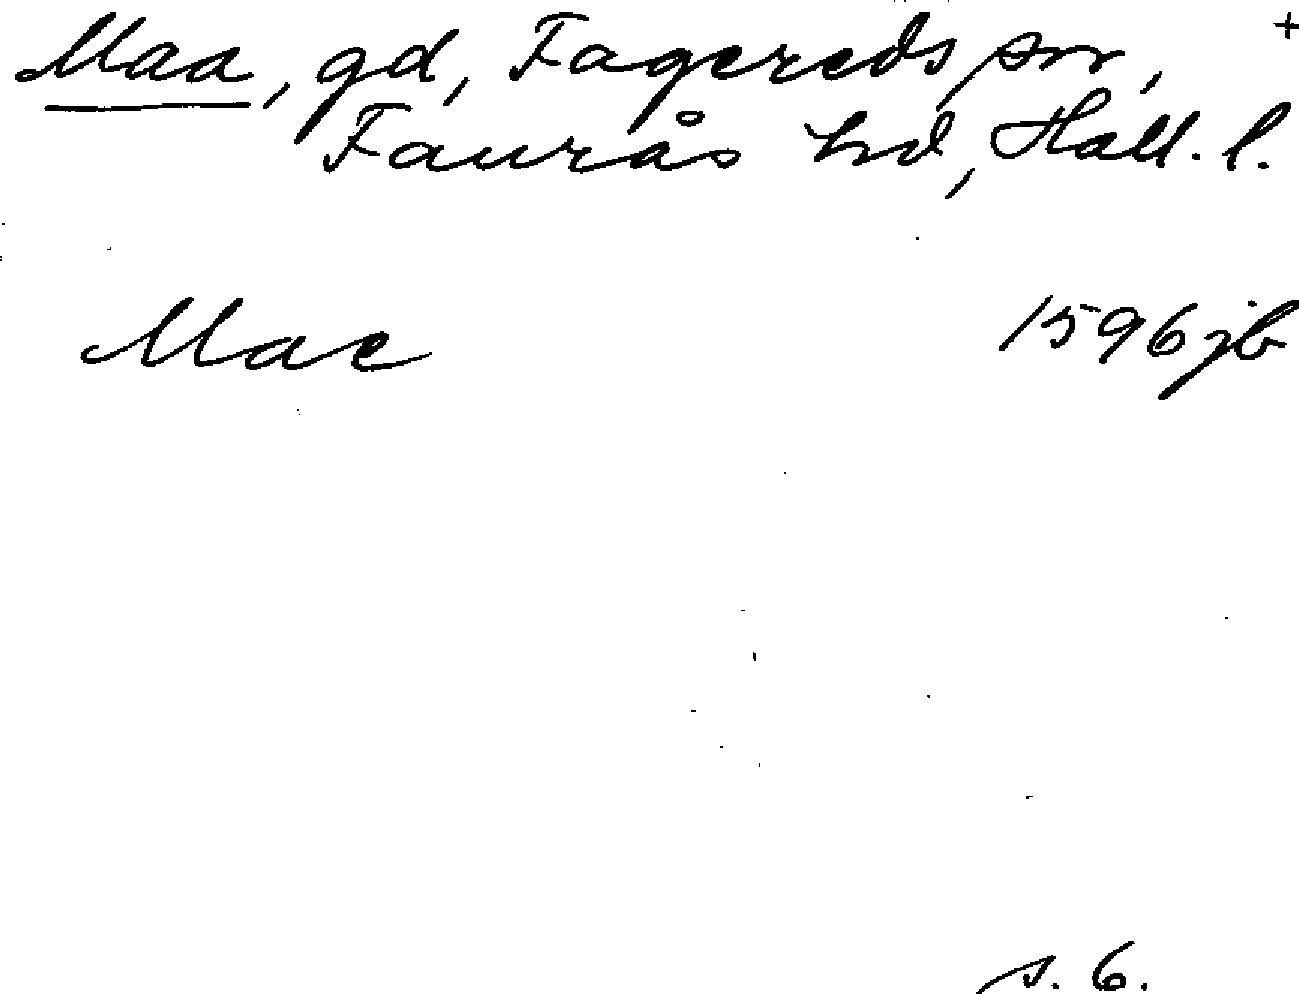 Maa, gd, Fagereds sn, +
Faurås hd, Hall. l.
Mae 1596 jb
s. 6.